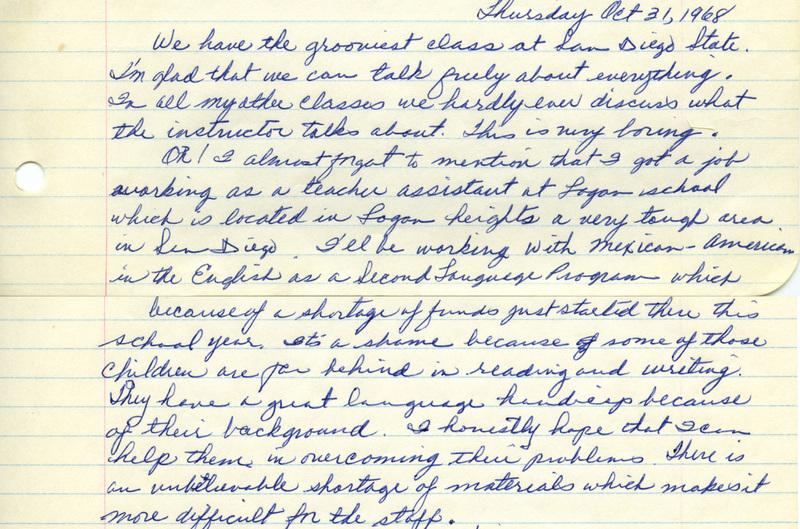 Thursday Oct 31, 1968
We have the grooviest class at San Diego State.
I'm glad that we can talk freely about everything.
In all my other classes we hardly ever discuss what
the instructor talks about. This is very boring.
Oh! I almost forgot to mention that I got a job
working as a teacher assistant at Logan school
which is located in Logan heights a very tough area
in San Diego. I'll be working with Mexican-American
in the English as a Second Language Program which
because of a shortage of funds just started there this
school year. It's a shame because of some of those
children are far behind in reading and writing.
They have a great language handicap because
of their background. I honestly hope that I can
help them in overcoming their problems. There is
an unbelievable shortage of materials which makes it
more difficult for the staff.